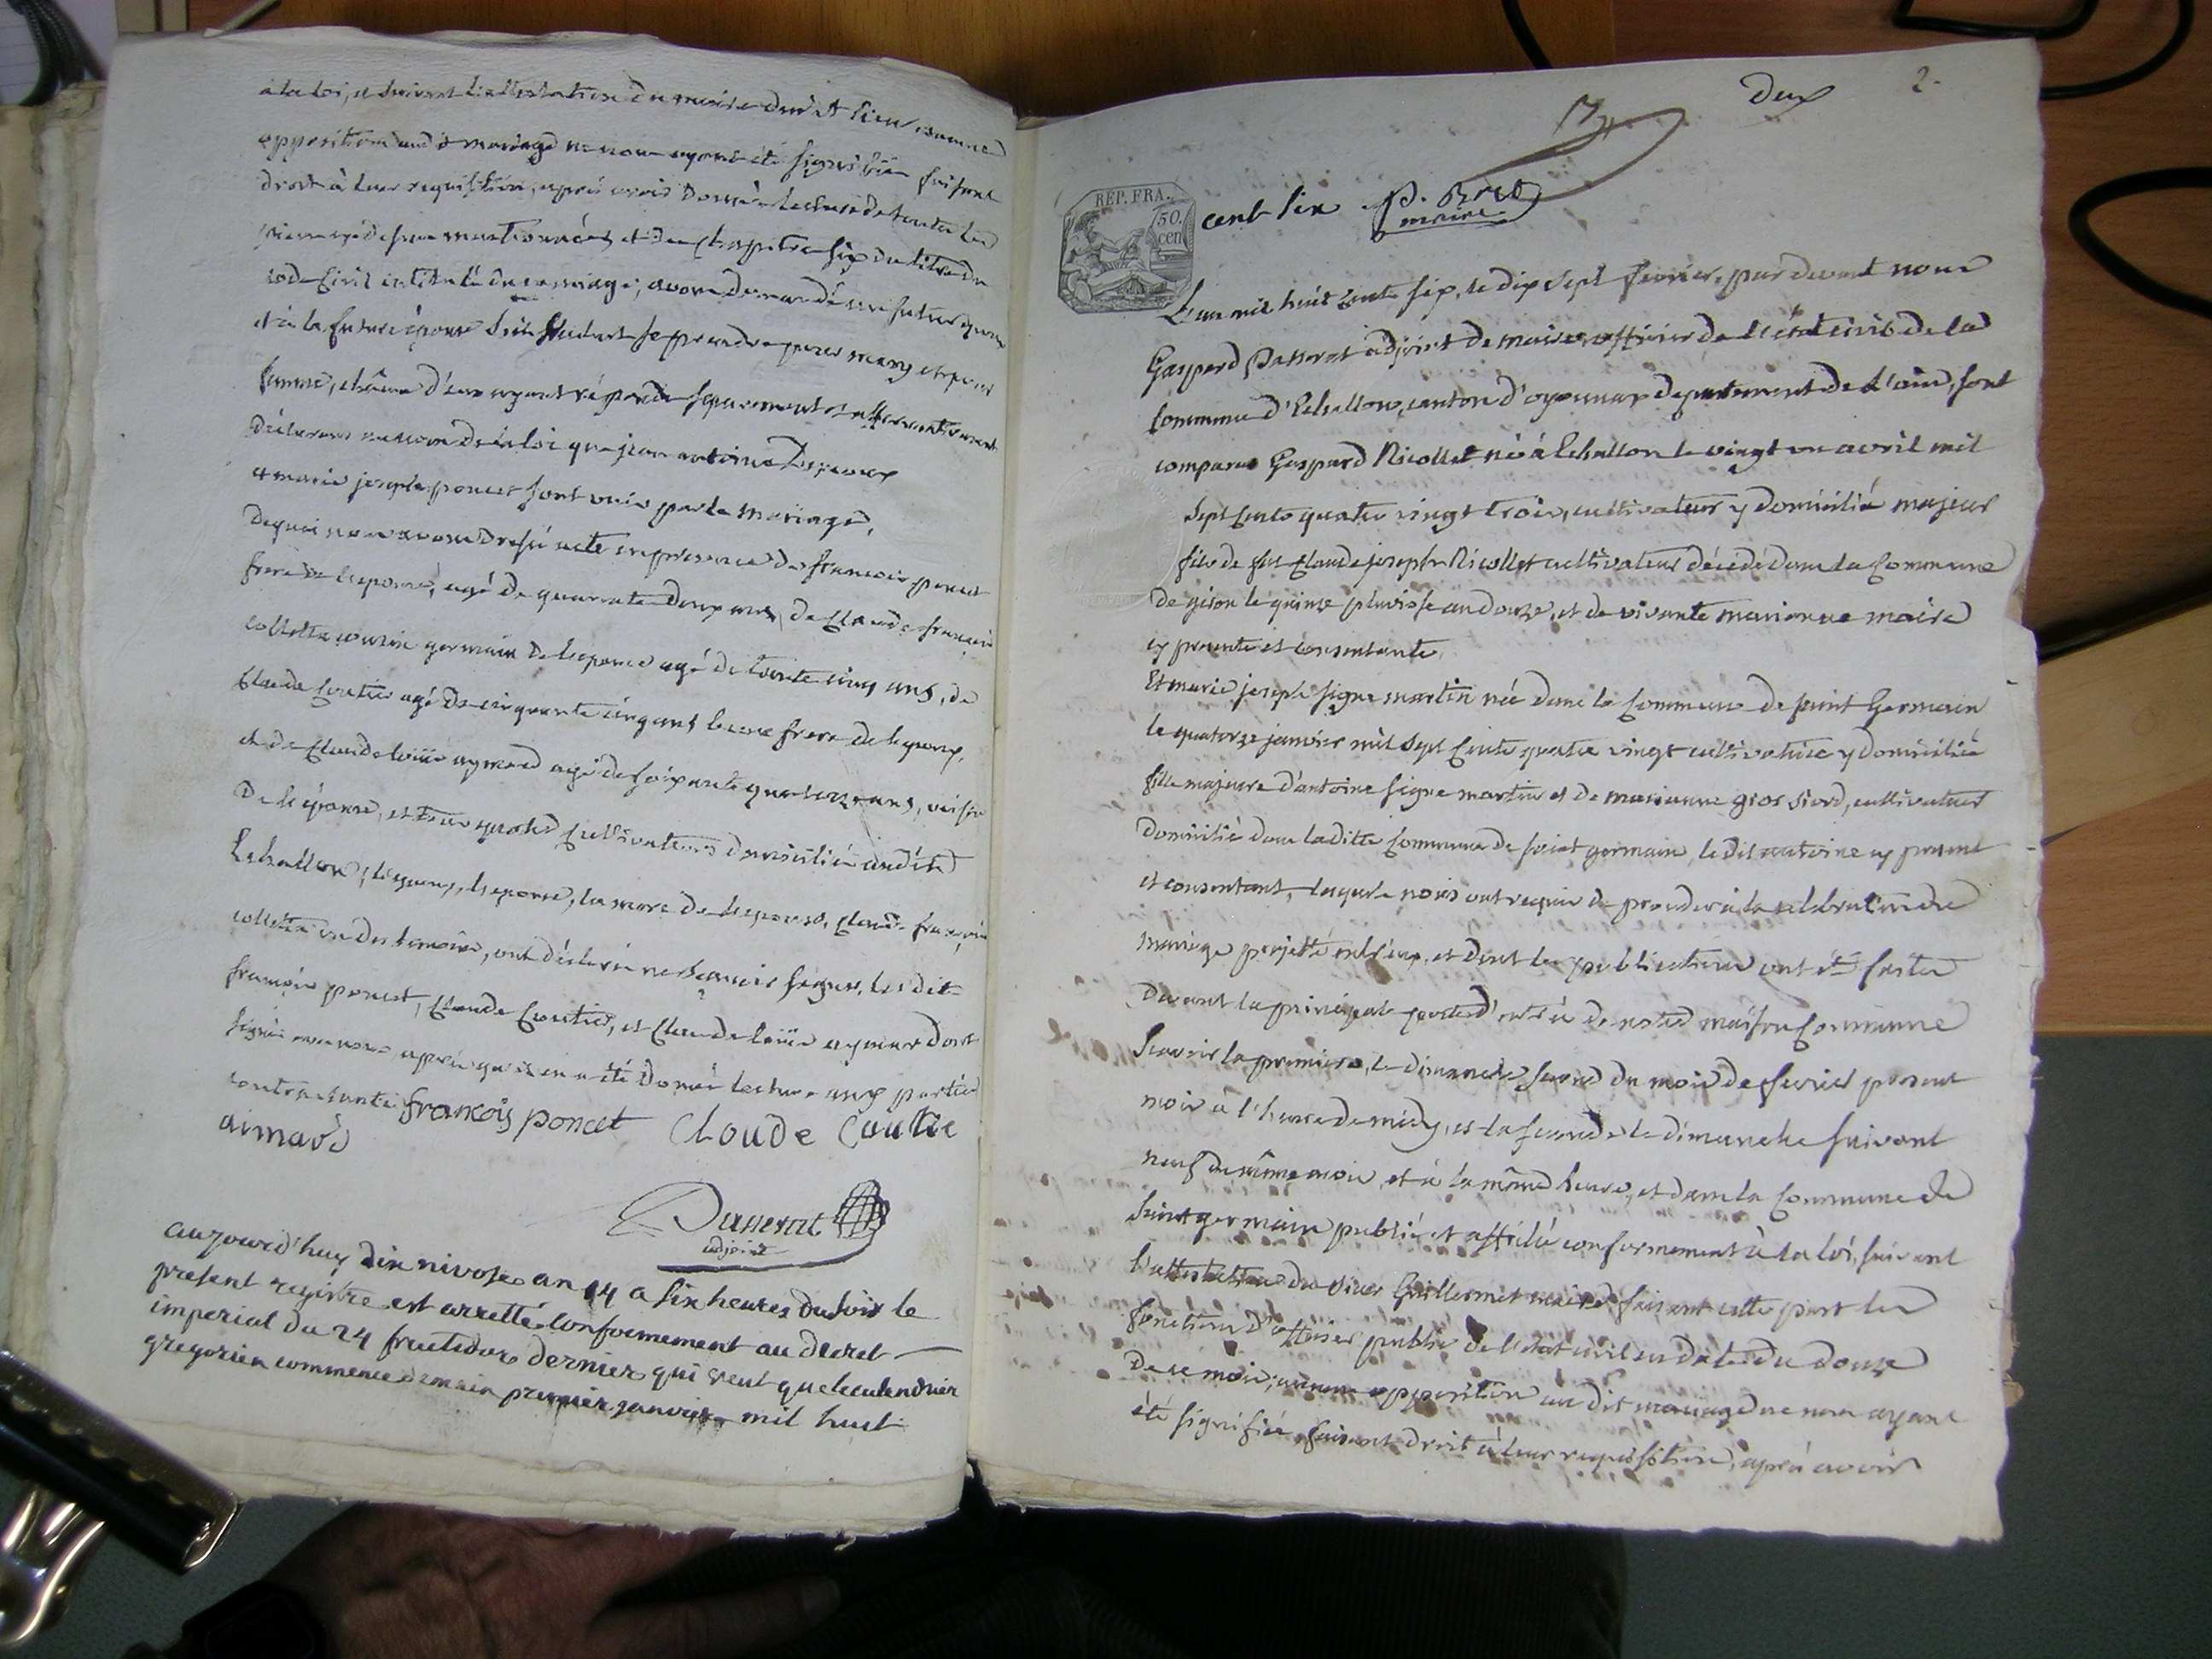 à la loi, et suivant l'attestation du maire dud.t lieu, aucune
opposition aud.t mariage ne nous ayant été signifiée faisant
droit à leur requisition, après avoir donné lecture de toutes les
pieces cy dessus mentionnées, et du chapitre six du titre du
code civil intitulé du mariage, avons demandé au futur epoux
et à la future épouse s'ils veulent se prendre pour mary et pour
femme, chacun d'eux ayant répondu separement et affirmativement
déclarons au nom de la loi que jean antoine
et marie josephe poncet sont unis par le mariage,
de quoi nous avons dressé acte en presence de francois poncet
frere de l'epouse, agé de quarante deux ans, de Claude francois
collettaz cousin germain de l'epouse agé de trente cinq ans, de
Claude Coutier agé de cinquante cinq ans beau frere de l'epoux,
et de Claude louis aymard agé de soixante quatorze ans, voisin
de l'épouse, et tous quatre cultivateurs domiciliés audit
Echallon, l'epoux, l'epouse, la mere de l'epouse, Claude francois
un des temoins, ont déclaré ne scavoir signer, les dits
francois poncet, Claude Coutier, et Claude louis aymard ont
signé avec nous après qu'il en a été donné lecture aux parties
contractantes francois poncet Cloude Coutie
aimard
Passerat
adjoint
aujourd'huy dix nivose an 14 a six heures du soir le
present registre est arretté conformement au decret
imperial du 24 fructidor dernier qui veut que le calendrier
gregorien commence demain premier janvier mil huit
Deux 2.
REP. FRA.
50.
cen
cent six P. Bret
maire
L'an mil huit cents six, le dix sept fevrier, par devant nous
Gaspard Passerat adjoint de maire, officier de l'état civil de la
Commune d'Echallon, canton d'oyonnax departement de l'ain, sont
comparus Gaspard Nicollet né à Echallon le vingt un avril mil
sept cents quatre vingt trois, cultivateur y domicilié majeur
fils de feu Claude joseph Nicollet cultivateur décédé dans la Commune
de giron le quinze pluviose an douze, et de vivante marianne maire
cy presente et consentante,
Et marie josephe signe martin née dans la Commune de saint Germain
le quatorze janvier mil sept cents quatre vingt cultivatrice y domiciliée
fille majeure d'antoine signe martin et de marianne gros siord, cultivateur
domicilié dans ladite Commune de saint germain, le dit antoine cy present
et consentant, lesquels nous ont requis de proceder à la celebration du
mariage projetté entr'eux, et dont les publications ont été faites
devant la principale porte d'entrée de notre maison Commune
scavoir la premiere, le dimanche second du mois de fevrier present
mois à l'heure de midy, et la seconde le dimanche suivant
neuf du même mois, et à la même heure, et dans la Commune de
saint germain publié et affiché conformement à la loi, suivant
l'attestation du sieur Guillermet maire faisant cette part les
fonctions d'officier public de l'état civil en date du douze
de ce mois, aucune opposition au dit mariage ne nous ayant
été signifiée, faisant droit à leur requisition, après avoir